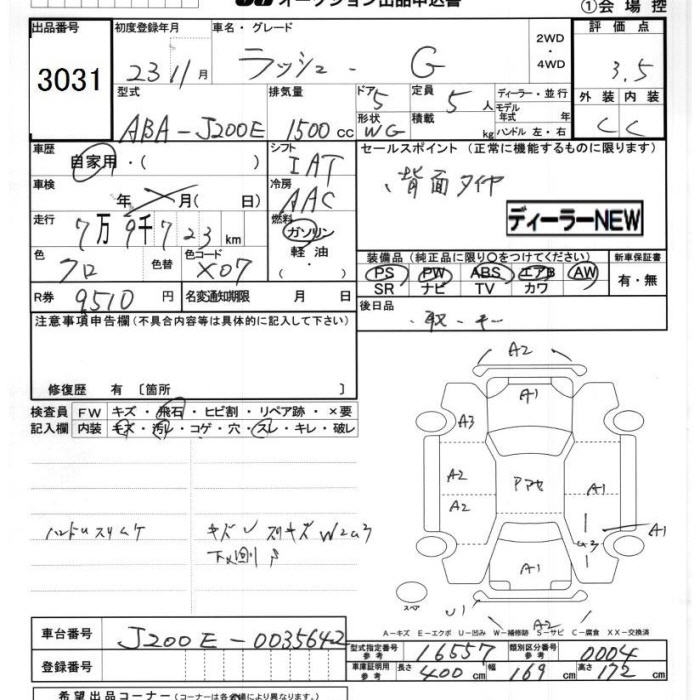 オークション出品申込書
①会場控
出品番号 初度登録年月 車名・グレード 2WD 評価点
3031 23 11月 ラッシュ - G ・4WD 3.5
型式 排気量 ドア 5 定員 5人 ディーラー・並行 外装 内装
ABA-J200E 1500cc 形状 WG 積載 kg モデル年式 年 C C
ハンドル 左・右
車歴 自家用・( ) シフト IAT セールスポイント (正常に機能するものに限ります)
車検 年 月( 日) 冷房 AAC 、背面タイヤ
走行 7万9千723km 燃料 ガソリン ディーラーNEW
色 クロ 色替 色コード X07 軽油 ・( ) 装備品(純正品に限り○をつけてください) 新車保証書
PS PW ABS エアB AW 有・無
SR ナビ TV カワ
R券 9510円 名変通知期限 月 日 後日品
注意事項申告欄(不具合内容等は具体的に記入して下さい) ・取・キー
修復歴 有 [箇所 ]
検査員 FW キズ・飛石・ヒビ割・リペア跡・×要
記入欄 内装 キズ・汚レ・コゲ・穴・スレ・キレ・破レ
A2
A1
A3
A2 A1
A2
U3 A1
A1
スペア U1 A2
ハンドルスリムケ キズU スリキズ W2U3
A-キズ E-エクボ U-凹み W-補修跡 S-サビ C-腐食 XX-交換済
車台番号 J200E-0035642
型式指定番号 参考 16557 類別区分番号 参考 0004
登録番号 車庫証明用 参考 長さ 400cm 幅 169cm 高さ 172cm
希望出品コーナー(コーナーは各会場により異なります。)